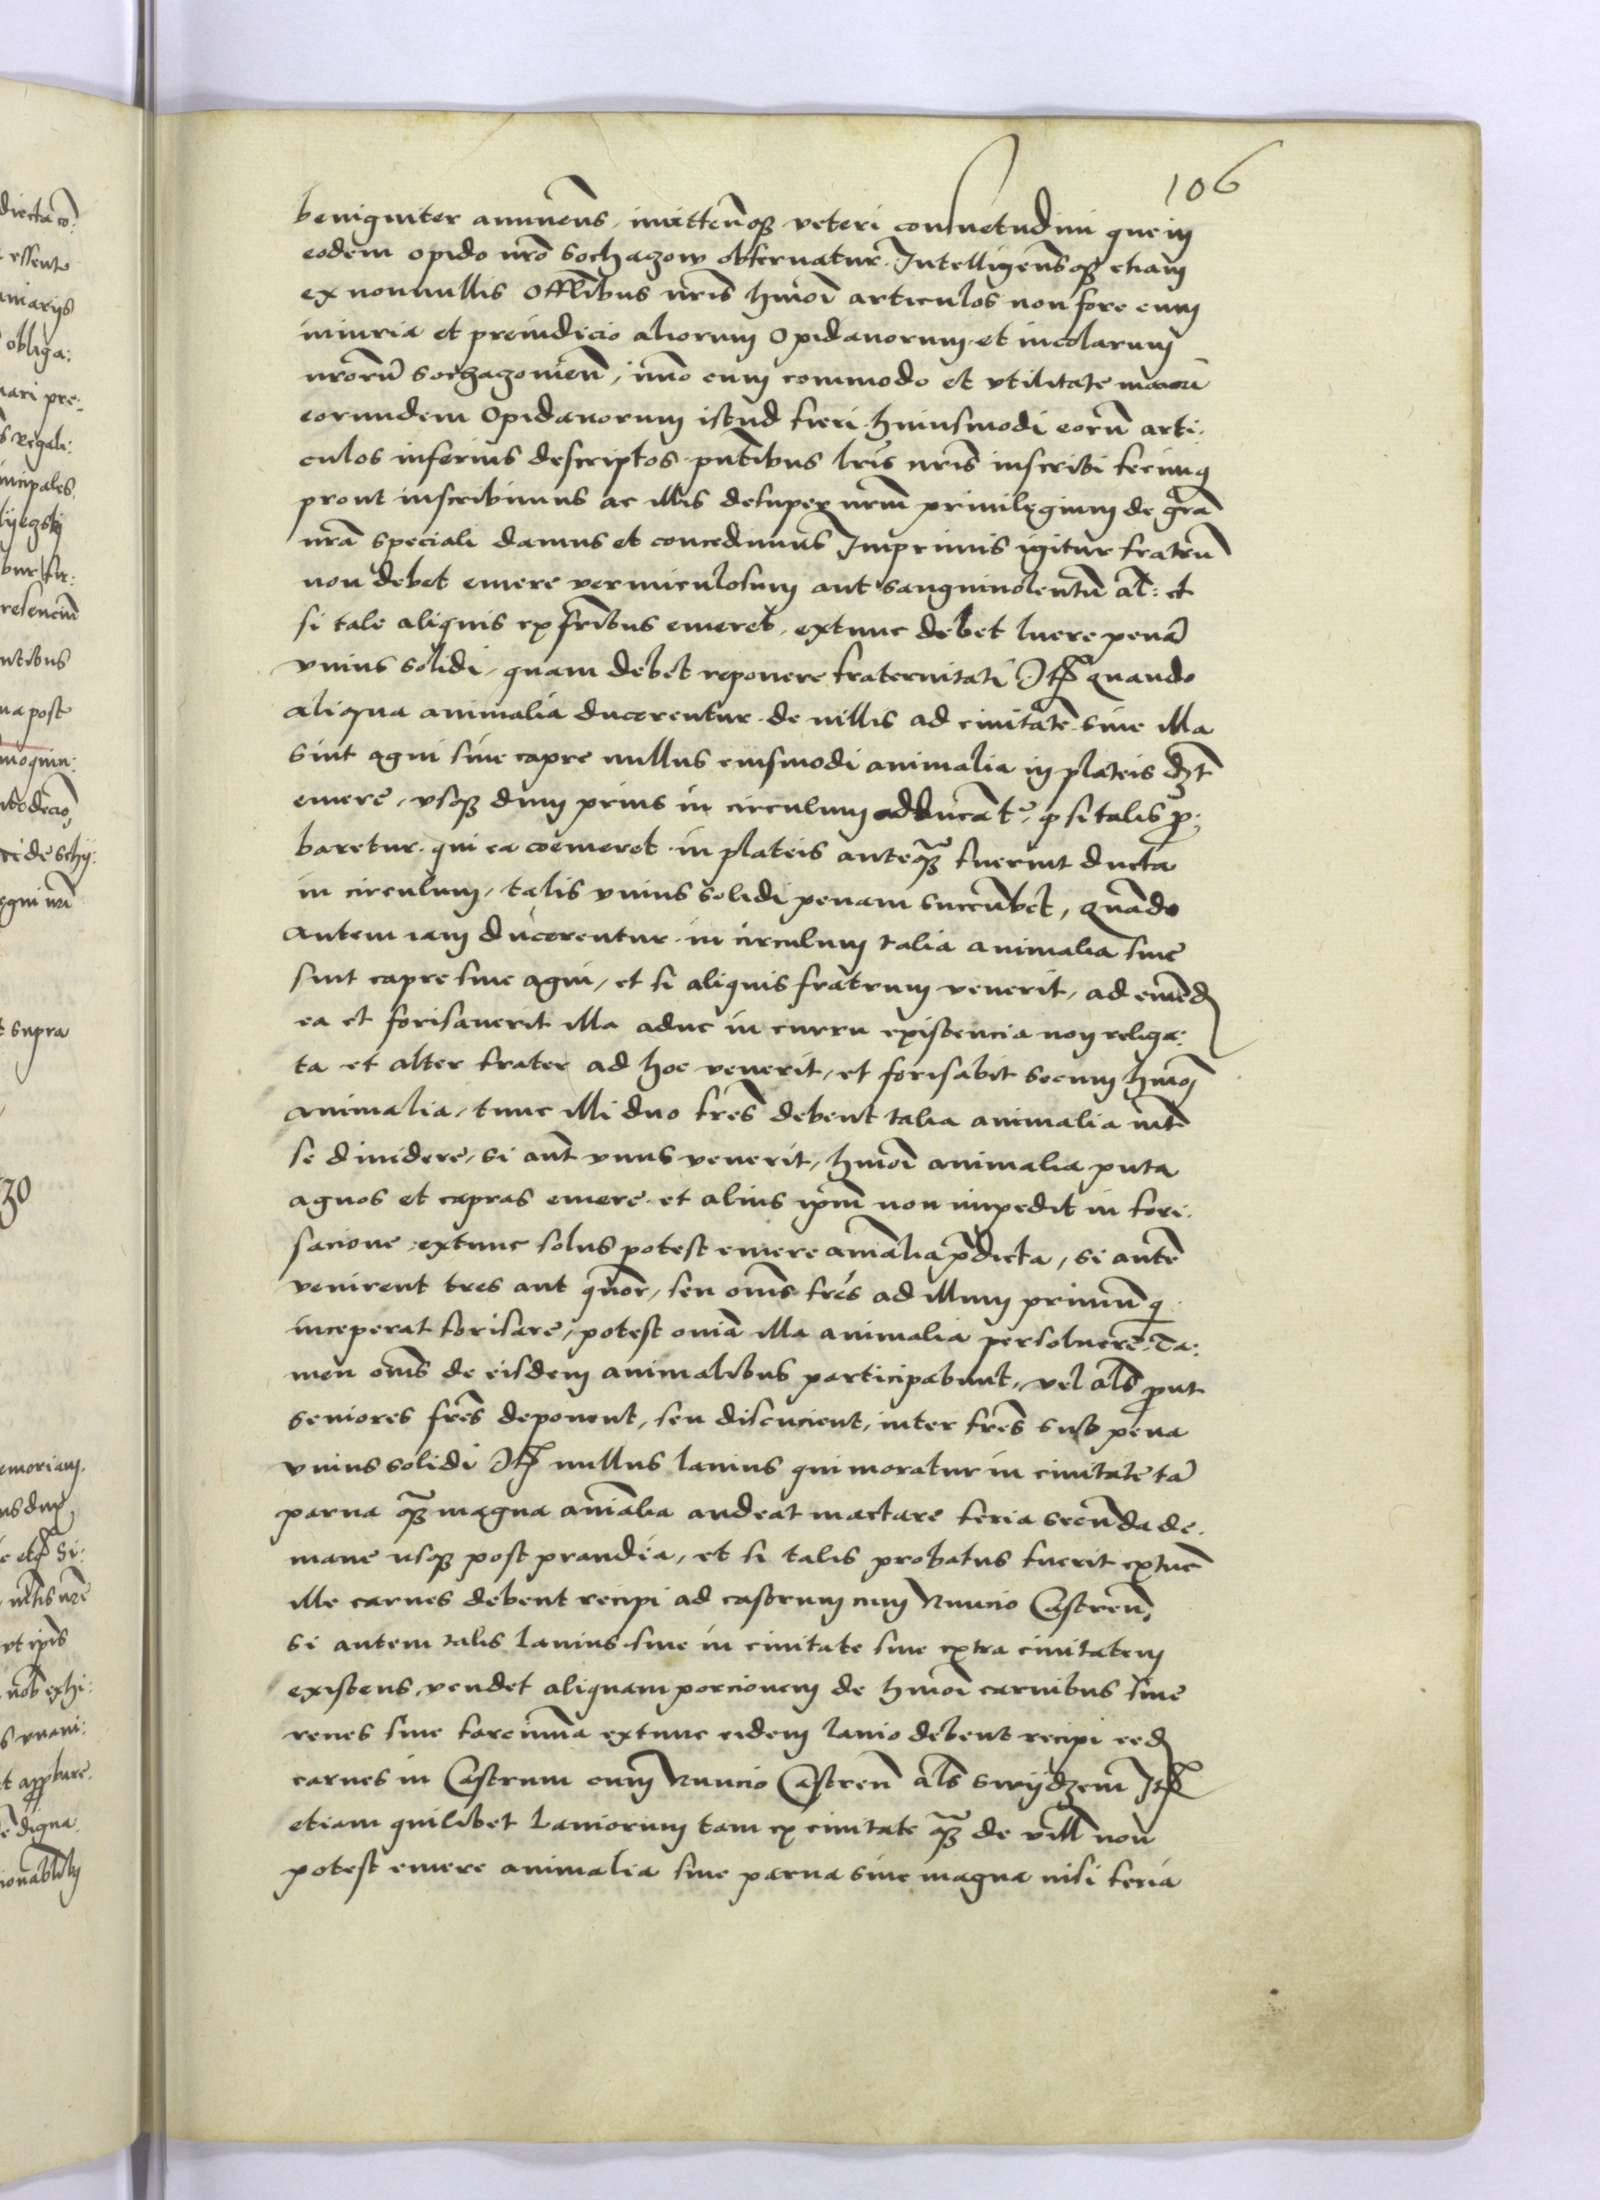 106
benigniter annuens, innittenqꝫ veteri consuetudini que in
eodem opido nrō Sochazow obseruatur. Intelligensqꝫ etiam
ex nonnullis Offlibus nris hmoi articulos non fore cum
iniuria et preiudicio aliorum Opidanorum et incolarum
nrorū Sochazouien̄, imo cum commodo et vtilitate maiori
eorundem Opidanorum istud fieri huiusmodi eorū arti.
culos inferius descriptos pntibus lris nris inscribi fecimꝯ
prout inscribimus ac illis desuper nrm priuilegium de grā
nrā speciali damus et concedimus Imprimis igitur fratrū
non debet emere vermiculosum aut sanguinolentū al: et
si tale aliquis ex fribus emeret, extunc debet luere penā
vnius solidi, quam debet reponere fraternitati Itꝫ quando
aliqua animalia ducerentur de villis ad ciuitatē siue illa
sint agni siue capre nullus eiusmodi animalia in plateis dꝫt
emere, vsqꝫ dum prius in circulum adducātr, ꝙ si talis ꝓ:
baretur qui ea coemeret in plateis anteqꝫ fuerint ducta
in circulum, talis vnius solidi penam succūbet, quādo
autem iam ducerentur in circulum talia animalia siue
sint capre siue agni, et si aliquis fratrum venerit, ad emēd
ea et forisauerit illa aduc in curru existencia non religa:
ta et alter frater ad hoc venerit, et forisabit secum hmoi
animalia, tunc illi duo frēs debent talia animalia intr
se diuidere, si aut vnus venerit, hmoi animalia puta
agnos et capras emere et alius ipm non impedit in fori.
sacione extunc solus potest emere amalia pdicta, si autē
venirent tres aut quor, seu oms frēs ad illum primū q
inceperat forisare, potest omia illa animalia persoluere Ta:
men oms de eisdem animalibus participabunt, vel als ꝓut
seniores frēs deponent, seu discucient, inter frēs sub pena
vnius solidi Itꝫ nullus lanius qui moratur in ciuitate tā
parua qꝫ magna amalia audeat mactare feria secūda de.
mane usqꝫ post prandia, et si talis probatus fuerit extūc
ille carnes debent recipi ad castrum cum Nuncio Castren̄,
Si autem talis Lanius siue in ciuitate siue extra ciuitatem
existens, vendet aliquam porcionem de hmoi carnibus siue
renes siue farcimina extunc eidem lanio debent recipi eed
carnes in Castrum cum Nuncio Castren̄ als Swijdzem Itꝫ
etiam quilibet Laniorum tam ex ciuitate qꝫ de vill non
potest emere animalia siue parua siue magna nisi feria